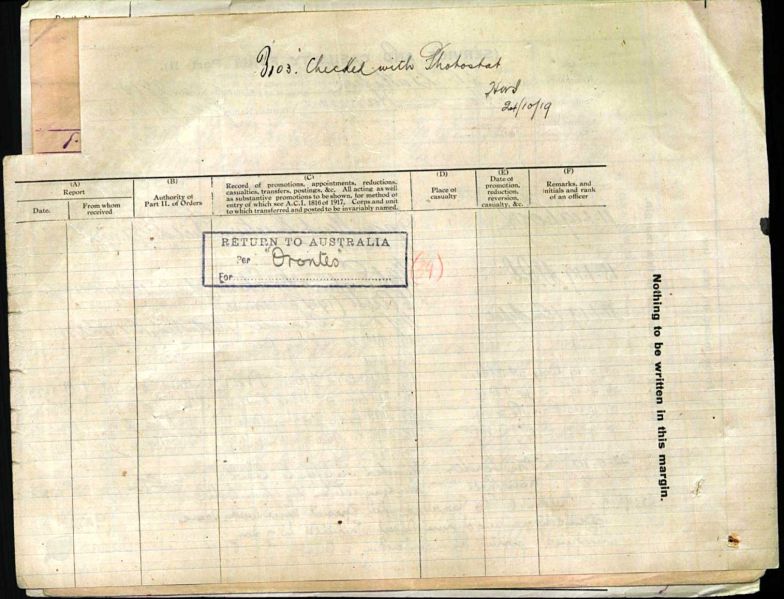 B103. Checked with Photostat
24/10/19
(A)
Report
Date.
From whom
received
(B)
Authority of
Part II. of Orders
(C)
Record of promotions, appointments, reductions,
casualties, transfers, postings, &c. All acting as well
as substantive promotions to be shown, for method of
entry of which see A.C.I. 1816 of 1917. Corps and unit
to which transferred and posted to be invariably named.
(D)
Place of
casualty
(E)
Date of
promotion,
reduction,
reversion,
casualty, &c.
(F)
Remarks, and
initials and rank
of an officer
RETURN TO AUSTRALIA
Per "Orontes"
For
Nothing to be written in this margin.